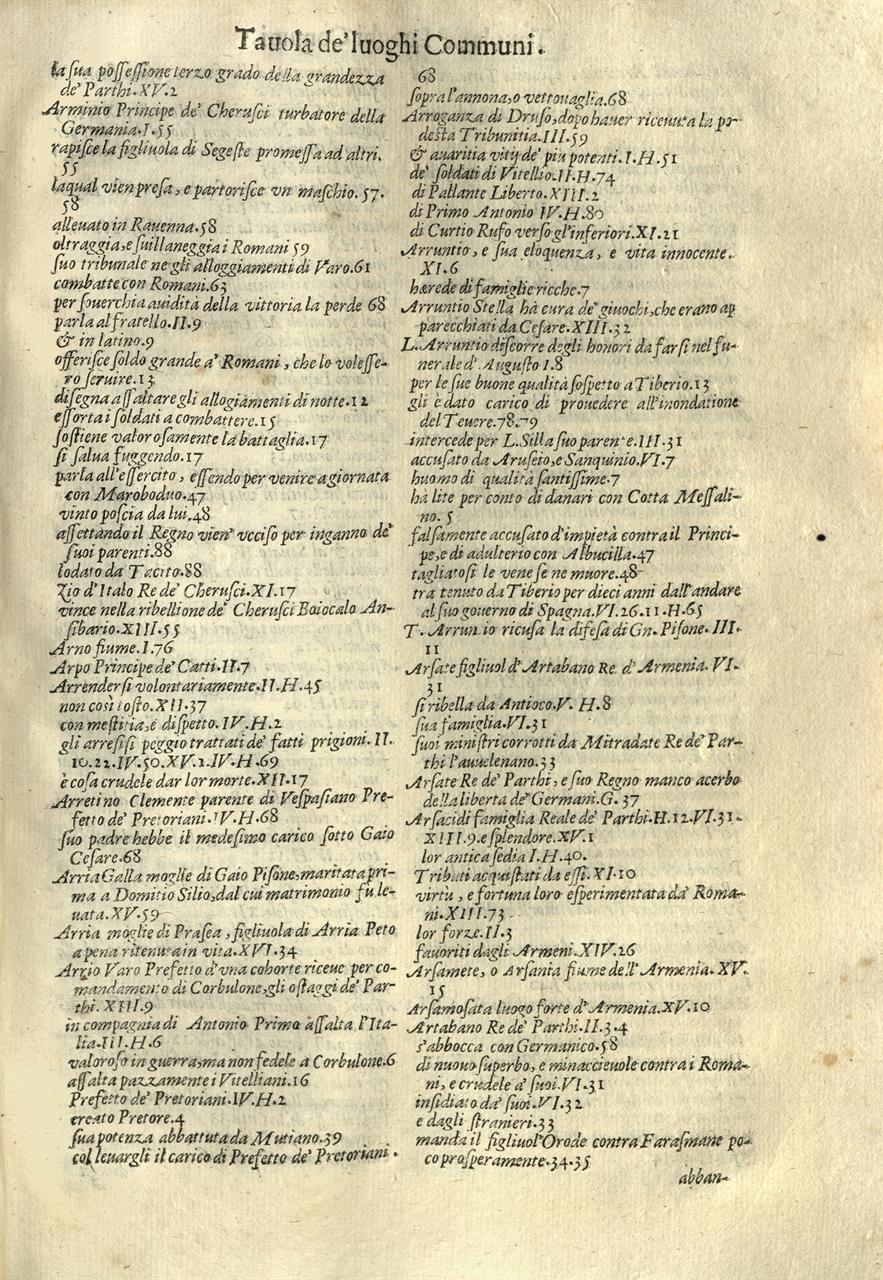 Tauola de' luoghi Communi.
la sua possessione terzo grado della grandezza
de' Parthi. XV.2
Arminio Principe de' Cherusci turbatore della
Germania.I.55
rapisce la figliuola di Segeste promessa ad altri.
55
laqual vien presa, e partorisce vn maschio. 57.
58
alleuato in Rauenna.58
oltraggia, e suillaneggia i Romani 59
suo tribunale negli alloggiamenti di Varo.61
combatte con Romani.63
per souerchia auidità della vittoria la perde 68
parla al fratello.II.9
& in latino.9
offerisce soldo grande a' Romani, che lo volesse-
ro seruire.13
disegna assaltare gli allogiamenti di notte.12
essorta i soldati a combattere.15
sostiene valorosamente la battaglia.17
si salua fuggendo.17
parla all'essercito, essendo per venire a giornata
con Maroboduo.47
vinto poscia da lui.48
assettando il Regno vien' vcciso per inganno de'
suoi parenti.88
lodato da Tacito.88
Zio d'Italo Re de' Cherusci.XI.17
vince nella ribellione de' Cherusci Boiocalo An-
sibario.XIII.55
Arno fiume.I.76
Arpo Principe de' Catti.II.7
Arrendersi volontariamente.II.H.45
non così tosto.XII.37
con mestitia, e dispetto.IV.H.2
gli arresisi peggio trattati de' fatti prigioni.II.
10.22.IV.50.XV.1.IV.H.69
è cosa crudele dar lor morte.XII.17
Arretino Clemente parente di Vespasiano Pre-
fetto de' Pretoriani.IV.H.68
suo padre hebbe il medesimo carico sotto Gaio
Cesare.68
Arria Galla moglie di Gaio Pisone, maritata pri-
ma a Domitio Silio, dal cui matrimonio fu le-
uata.XV.59
Arria moglie di Prasea, figliuola di Arria Peto
a pena ritenuta in vita.XVI.34
Arrio Varo Prefetto d'vna cohorte riceue per co-
mandamento di Corbulone, gli ostaggi de' Par-
thi. XIII.9
in compagnia di Antonio Primo assalta l'Ita-
lia.III.H.6
valoroso in guerra, ma non fedele a Corbulone.6
assalta pazzamente i Vitelliani.16
Prefetto de' Pretoriani.IV.H.2
creato Pretore.4
sua potenza abbattuta da Mutiano.39
col leuargli il carico di Prefetto de' Pretoriani.
68
sopra l'annona, o vettouaglia.68
Arroganza di Druso, dopo hauer riceuuta la po-
desta Tribunitia.III.59
& auaritia vitij de' piu potenti.I.H.51
de' soldati di Vitellio.II.H.74
di Pallante Liberto.XIII.2
di Primo Antonio IV.H.80
di Curtio Rufo verso gl'inferiori.XI.21
Arruntio, e sua eloquenza, e vita innocente.
XI.6
hærede di famiglie ricche.7
Arruntio Stella hà cura de' giuochi, che erano ap
parecchiati da Cesare.XIII.32
L. Arruntio discorre degli honori da farsi nel fu-
nerale d' Augusto I.8
per le sue buone qualità sospetto a Tiberio.13
gli è dato carico di prouedere all'inondatione
del Teuere.78.79
intercede per L.Silla suo parente.III.31
accusato da Aruseio, e Sanquinio.VI.7
huomo di qualità santissime.7
hà lite per conto di danari con Cotta Messali-
no. 5
falsamente accusato d'impietà contra il Princi-
pe, e di adulterio con Albucilla.47
tagliatosi le vene se ne muore.48
tra tenuto da Tiberio per dieci anni dall'andare
al suo gouerno di Spagna.VI.26.11.H.65
T. Arruntio ricusa la difesa di Gn. Pisone. III.
11
Arsate figliuol d'Artabano Re d' Armenia. VI.
31
si ribella da Antioco.V. H.8
sua famiglia.VI.31
suoi ministri corrotti da Mitradate Re de' Par-
thi l'auuelenano.33
Arsate Re de' Parthi, e suo Regno manco acerbo
della liberta de' Germani.G. 37
Arsacidi famiglia Reale de' Parthi.H.12.VI.31.
XIII.9. e splendore.XV.1
lor antica sedia I.H.40.
Tributi acquistati da essi.XI.10
virtu, e fortuna loro esperimentata da' Roma-
ni.XIII.73
lor forze.II.3
fauoriti dagli Armeni.XIV.26
Arsamete, o Arsania fiume dell' Armenia. XV.
15
Arsamosata luogo forte d' Armenia.XV.10
Artabano Re de' Parthi.II.3.4
s'abbocca con Germanico.58
di nuouo superbo, e minacciceuole contra i Roma-
ni, e crudele a' suoi.VI.31
insidiato da' suoi.VI.32
e dagli stranieri.33
manda il figliuol'Orode contra Farasmane po-
co prosperamente.34.35
abban-